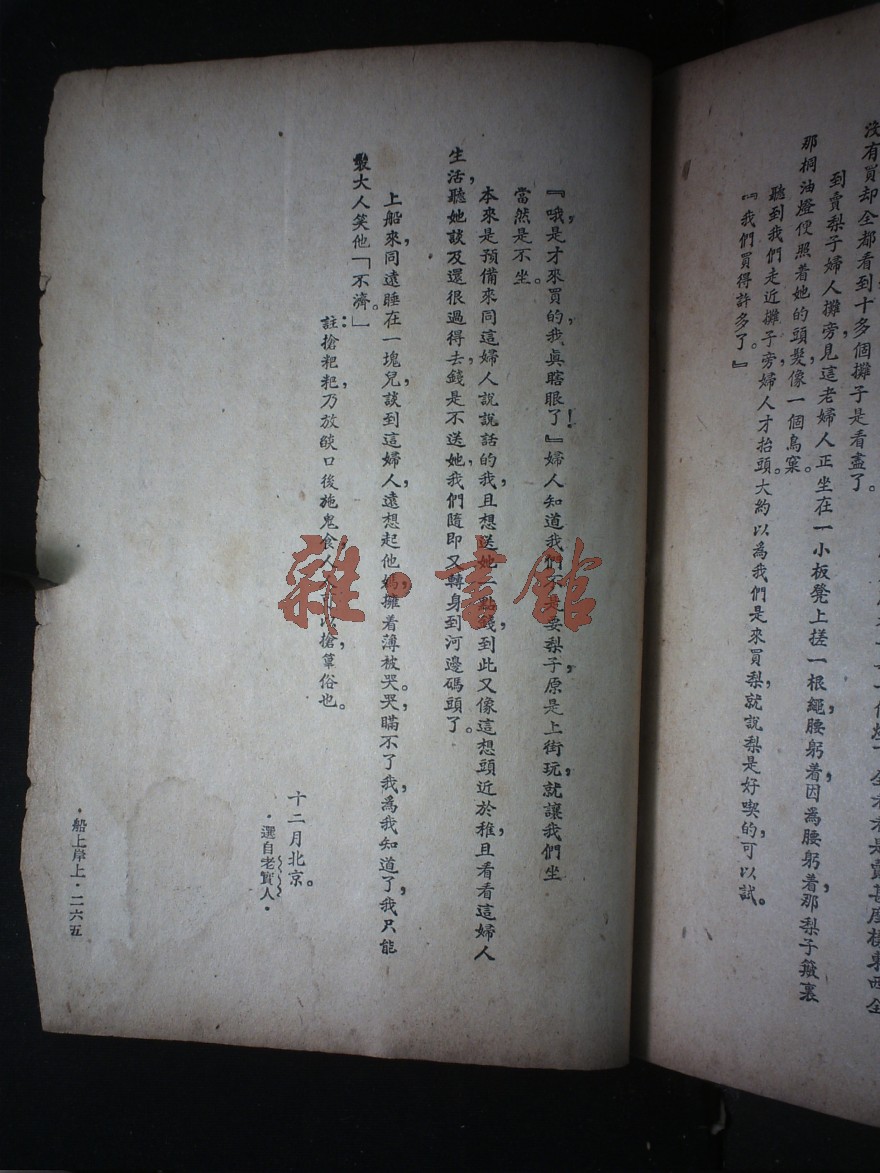 沒有買却全都看到十多個攤子是看盡了。
到賣梨子婦人攤旁,見這老婦人正坐在一小板凳上搓一根繩,腰躬着,因爲腰躬着那梨子籮裏
那桐油燈便照着她的頭髮,像一個鳥窠。
聽到我們走近攤子旁,婦人才抬頭。大約以爲我們是來買梨,就說梨是好喫的,可以試。
『我們買得許多了。』
『哦,是才來買的,我眞瞎眼了!』婦人知道我們不是要梨子,原是上街玩,就讓我們坐
當然是不坐。
本來是預備來同這婦人說說話的,我且想送她一點錢,到此又像這想頭近於稚,且看看這婦人
生活,聽她談及還很過得去,錢是不送她,我們隨即又轉身到河邊碼頭了。
上船來,同遠睡在一塊兒,談到這婦人,遠想起他媽,擁着薄被哭。哭,瞞不了我,爲我知道了,我只能
製大人笑他「不濟。」
註:搶粑粑,乃放燄口後施鬼食,人搶,俗也。
十二月北京。
·選自老實人·
·船上岸上·二六五
雜·書館